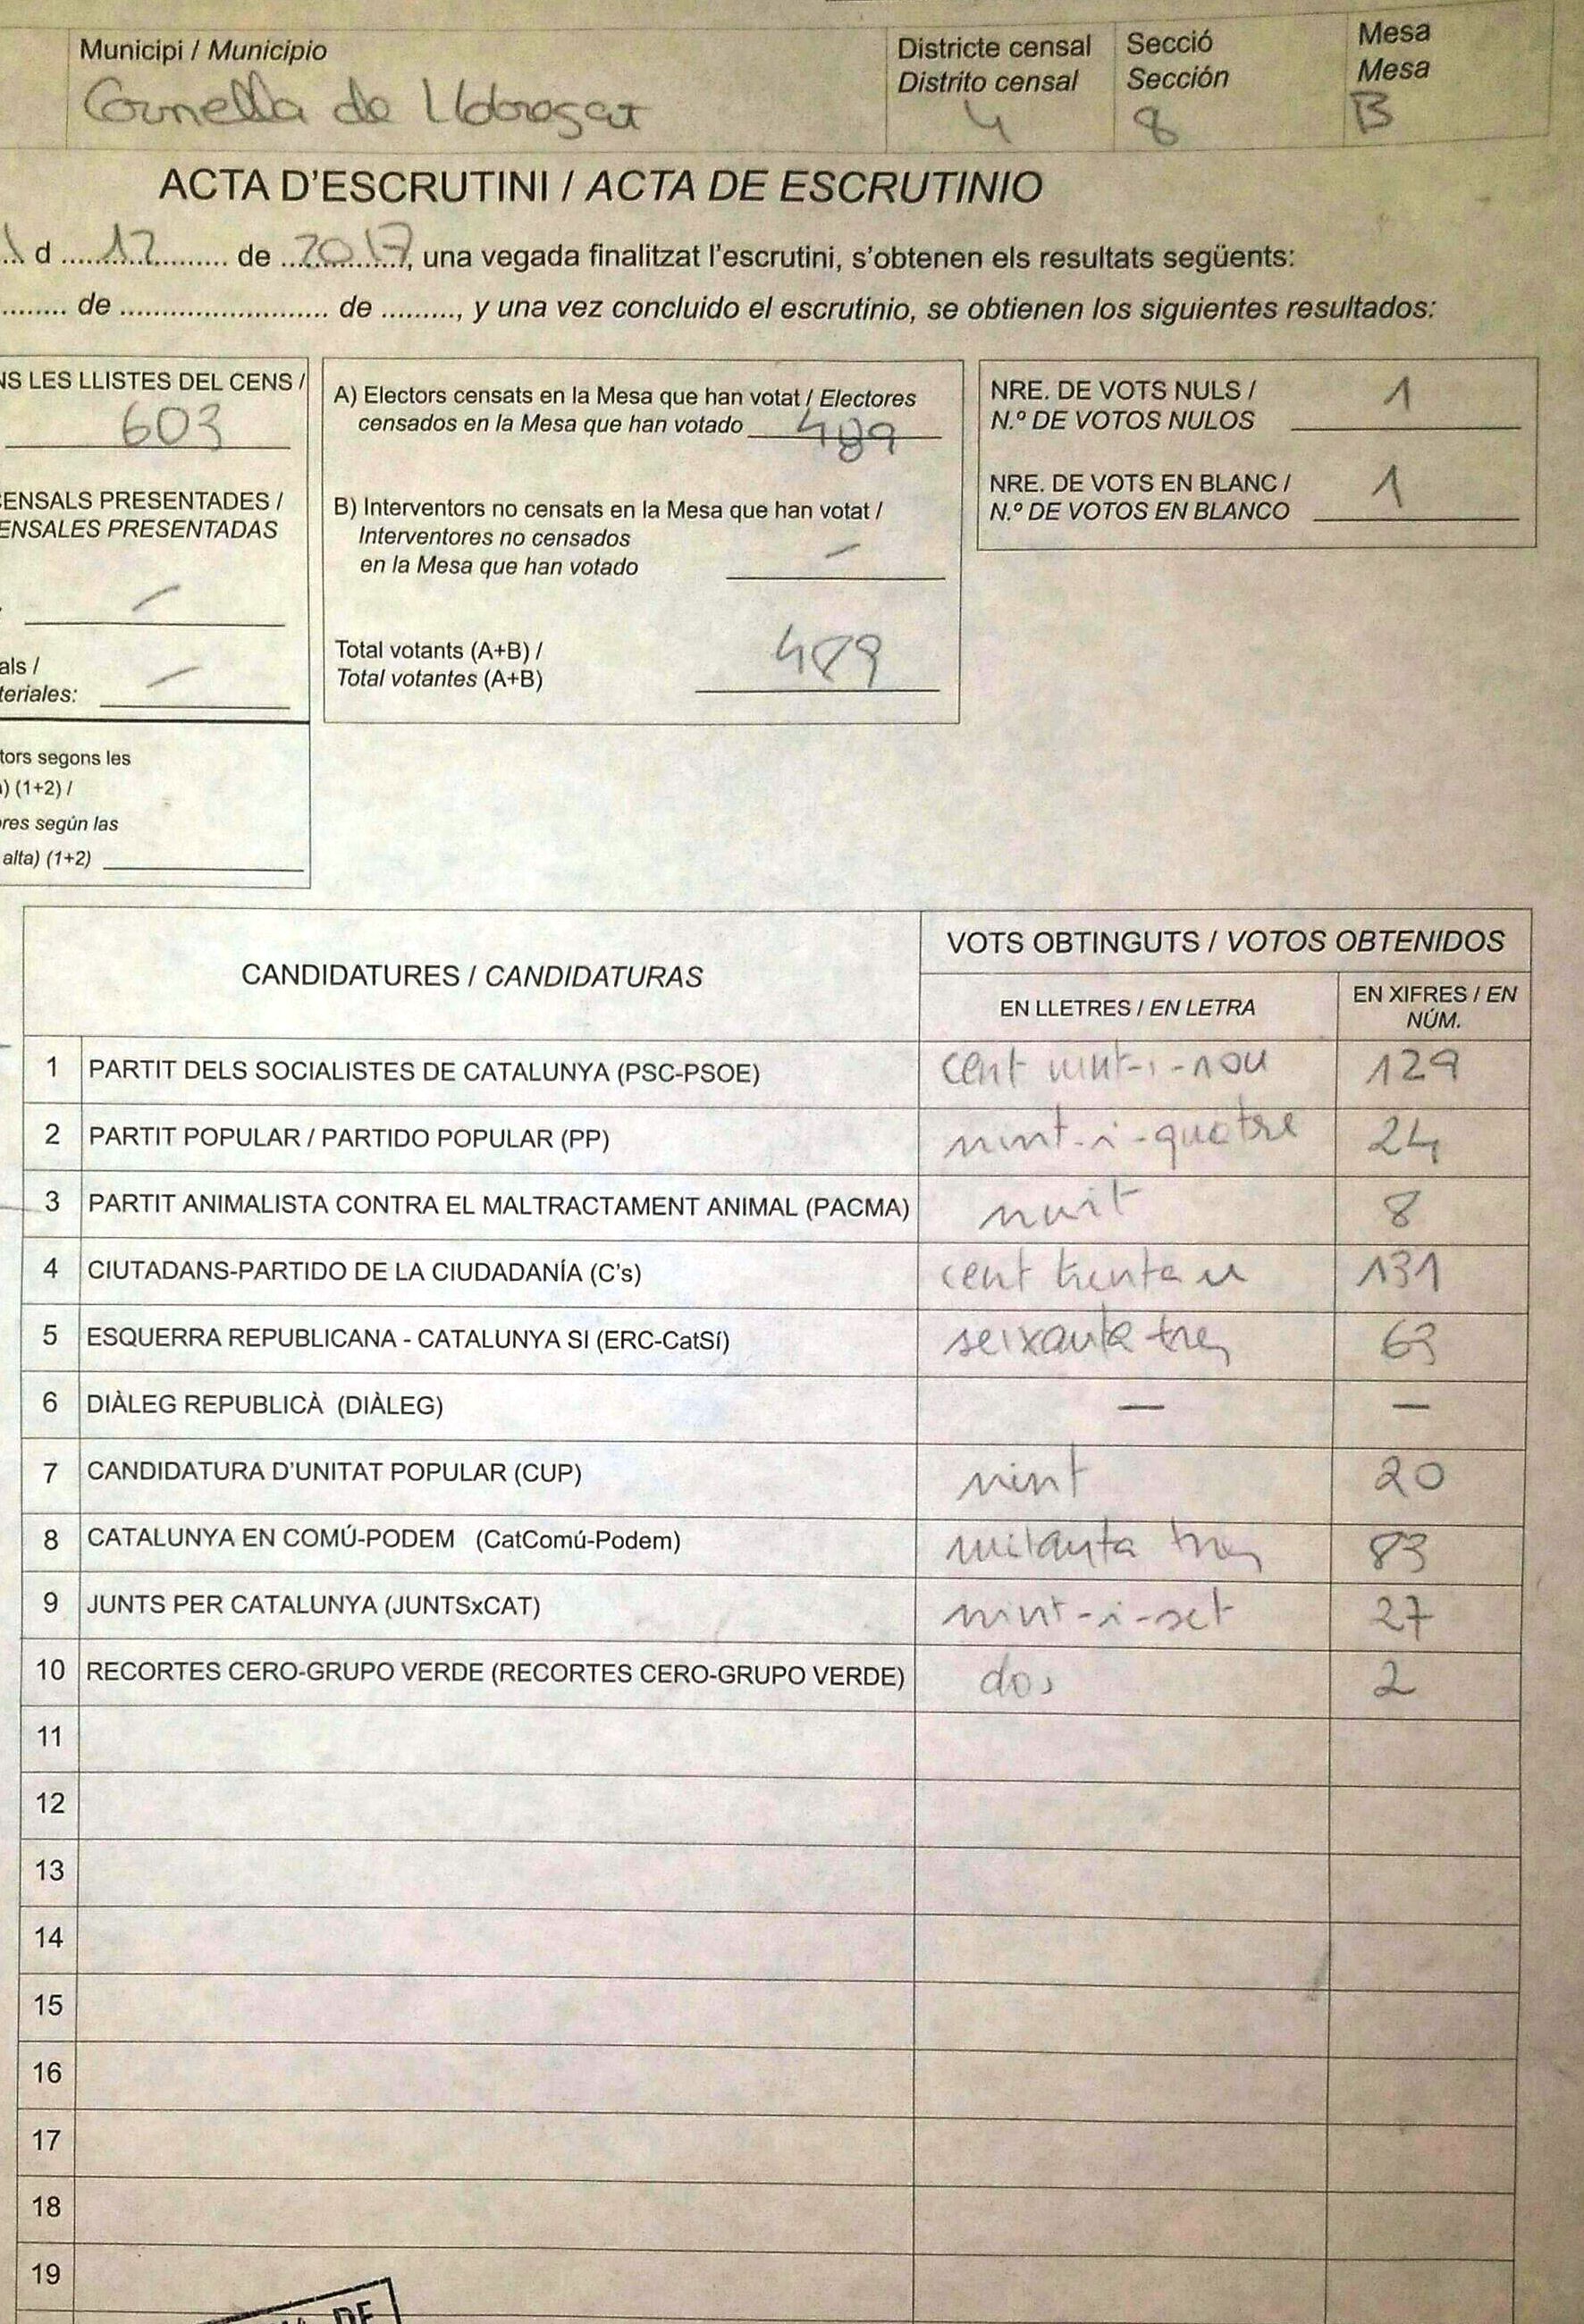 Municipi / Municipio
Cornella de Llobregat
Districte censal
Distrito censal
4
Secció
Sección
8
Mesa
Mesa
B
ACTA D'ESCRUTINI / ACTA DE ESCRUTINIO
d 12 de 2017, una vegada finalitzat l'escrutini, s'obtenen els resultats següents:
de de , y una vez concluido el escrutinio, se obtienen los siguientes resultados:
NS LES LLISTES DEL CENS /
603
CENSALS PRESENTADES /
ENSALES PRESENTADAS
–
als /
teriales: –
tors segons les
) (1+2) /
ores según las
alta) (1+2)
A) Electors censats en la Mesa que han votat / Electores
censados en la Mesa que han votado 489
B) Interventors no censats en la Mesa que han votat /
Interventores no censados
en la Mesa que han votado –
Total votants (A+B) /
Total votantes (A+B) 489
NRE. DE VOTS NULS /
N.º DE VOTOS NULOS 1
NRE. DE VOTS EN BLANC /
N.º DE VOTOS EN BLANCO 1
CANDIDATURES / CANDIDATURAS
VOTS OBTINGUTS / VOTOS OBTENIDOS
EN LLETRES / EN LETRA
EN XIFRES / EN
NÚM.
1 PARTIT DELS SOCIALISTES DE CATALUNYA (PSC-PSOE) cent vint-i-nou 129
2 PARTIT POPULAR / PARTIDO POPULAR (PP) vint-i-quatre 24
3 PARTIT ANIMALISTA CONTRA EL MALTRACTAMENT ANIMAL (PACMA) vuit 8
4 CIUTADANS-PARTIDO DE LA CIUDADANÍA (C's) cent trenta u 131
5 ESQUERRA REPUBLICANA - CATALUNYA SI (ERC-CatSí) seixanta tres 63
6 DIÀLEG REPUBLICÀ (DIÀLEG) — —
7 CANDIDATURA D'UNITAT POPULAR (CUP) vint 20
8 CATALUNYA EN COMÚ-PODEM (CatComú-Podem) vuitanta tres 83
9 JUNTS PER CATALUNYA (JUNTSxCAT) vint-i-set 27
10 RECORTES CERO-GRUPO VERDE (RECORTES CERO-GRUPO VERDE) dos 2
11
12
13
14
15
16
17
18
19
DE